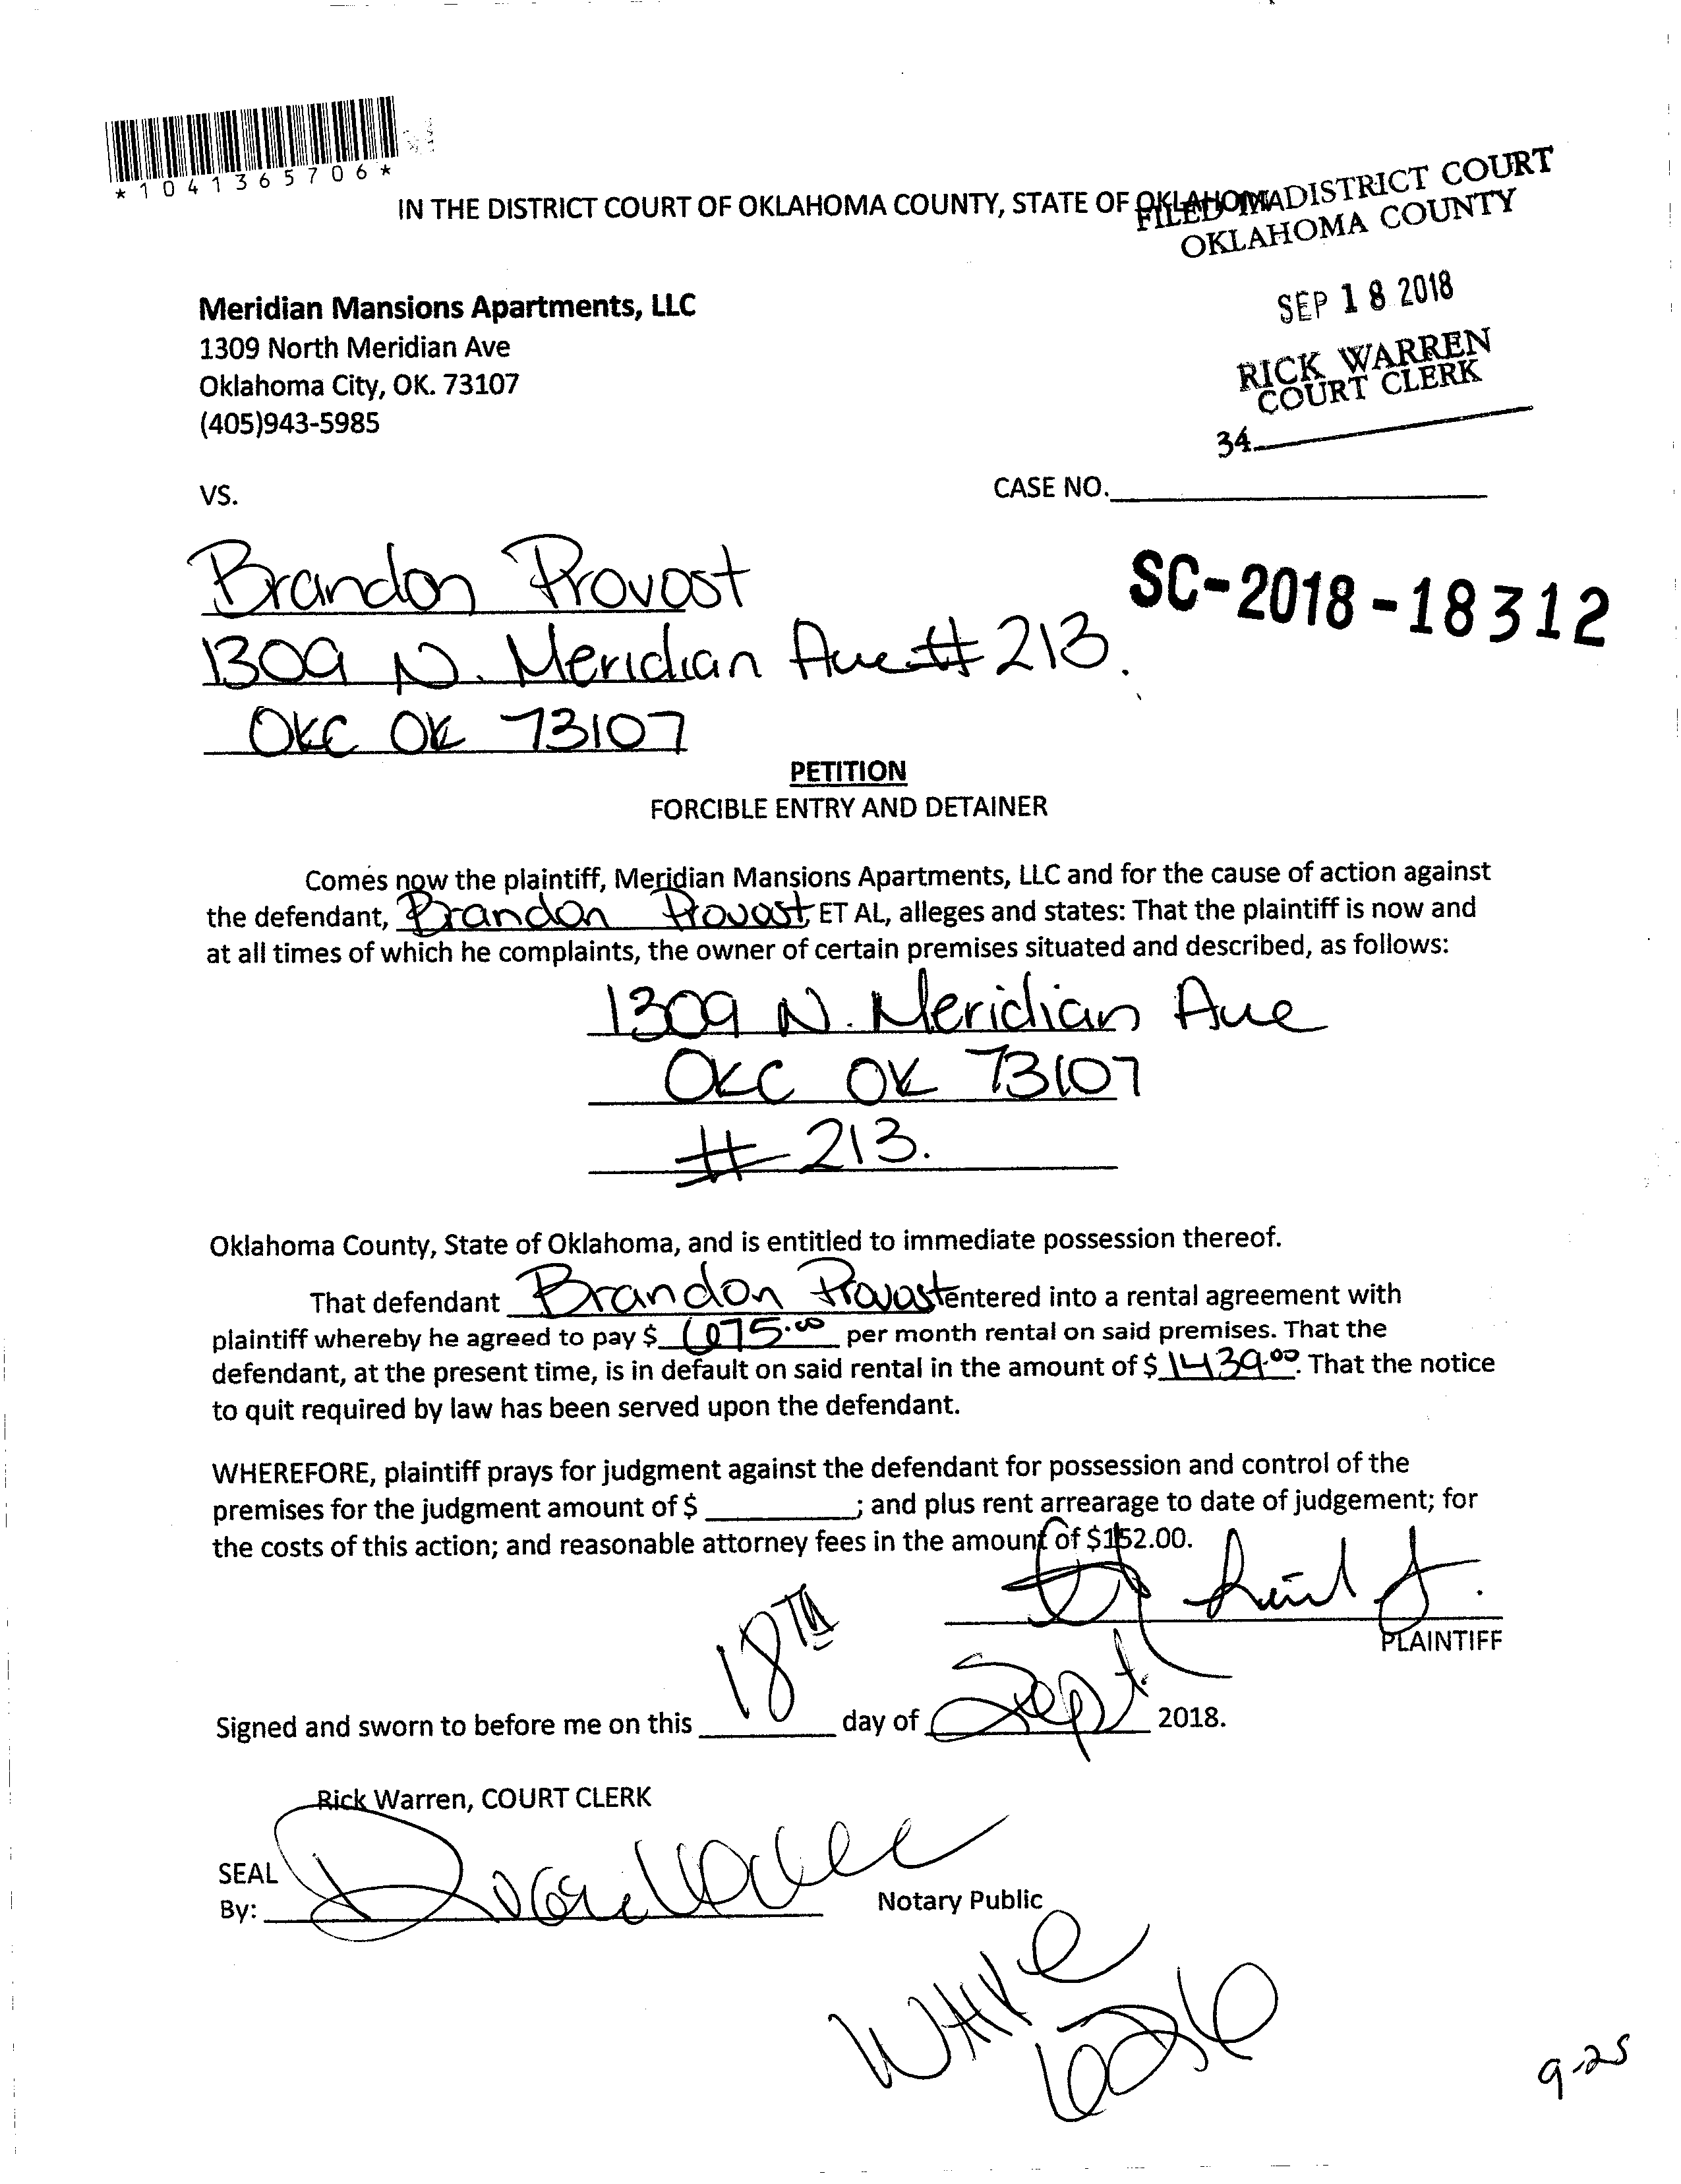 *1041365706*
IN THE DISTRICT COURT OF OKLAHOMA COUNTY, STATE OF OKLAHOMA
FILED IN DISTRICT COURT
OKLAHOMA COUNTY
SEP 18 2018
RICK WARREN
COURT CLERK
34
Meridian Mansions Apartments, LLC
1309 North Meridian Ave
Oklahoma City, OK. 73107
(405)943-5985
VS.
CASE NO.
SC-2018-18312
Brandon Provost
1309 N. Meridian Ave # 213.
OKC OK 73107
PETITION
FORCIBLE ENTRY AND DETAINER
Comes now the plaintiff, Meridian Mansions Apartments, LLC and for the cause of action against
the defendant, Brandon Provost, ET AL, alleges and states: That the plaintiff is now and
at all times of which he complaints, the owner of certain premises situated and described, as follows:
1309 N. Meridian Ave
OKC OK 73107
# 213.
Oklahoma County, State of Oklahoma, and is entitled to immediate possession thereof.
That defendant Brandon Provost entered into a rental agreement with
plaintiff whereby he agreed to pay $ 675.00 per month rental on said premises. That the
defendant, at the present time, is in default on said rental in the amount of $ 1439.00. That the notice
to quit required by law has been served upon the defendant.
WHEREFORE, plaintiff prays for judgment against the defendant for possession and control of the
premises for the judgment amount of $ ; and plus rent arrearage to date of judgement; for
the costs of this action; and reasonable attorney fees in the amount of $152.00.
PLAINTIFF
Signed and sworn to before me on this 18TH day of Sept. 2018.
Rick Warren, COURT CLERK
SEAL
By:
Notary Public
9-25